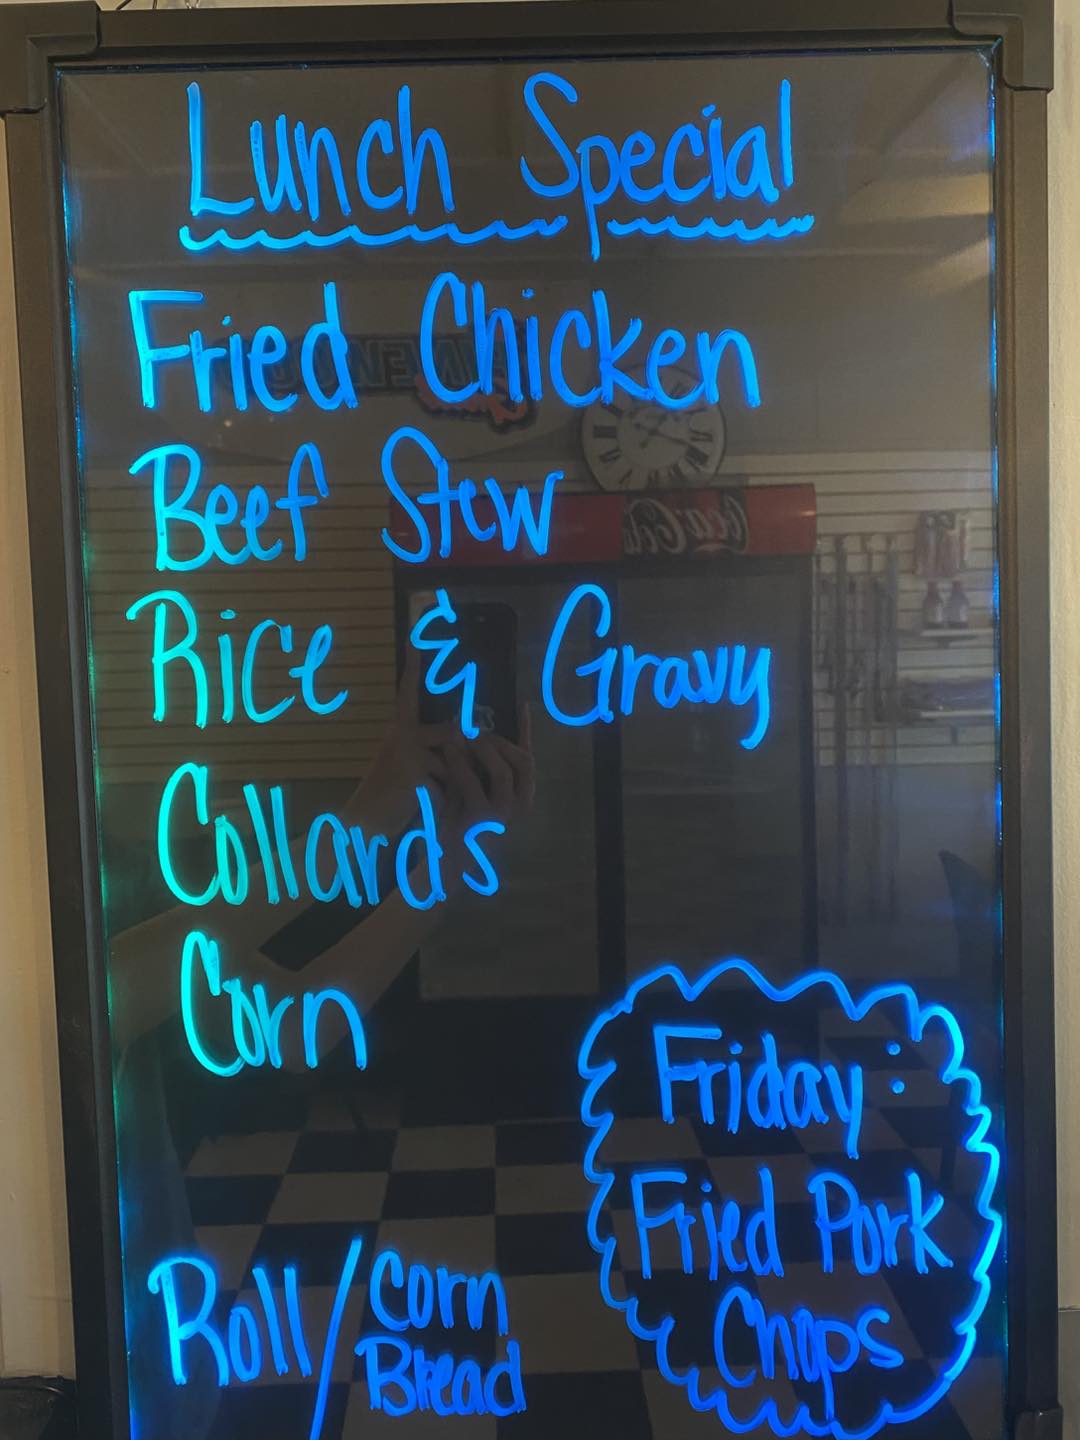 Lunch Special
Fried Chicken
Beef Stew
Rice & Gravy
Collards
Corn
Roll/Corn Bread
Friday:
Fried Pork
Chops
Coca-Cola